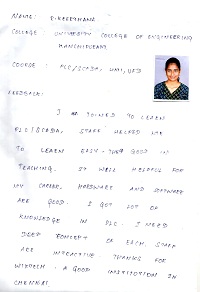 NAME :
COLLEGE : UNIVERSITY COLLEGE OF ENGINEERING
KANCHIPURAM
COURSE : PLC/SCADA, HMI, VFD
FEEDBACK:
I AM JOINED TO LEARN
PLC/SCADA, STAFF HELPED ME
TO LEARN EASY. THEY GOOD IN
TEACHING. IT WELL HELPFUL FOR
MY CAREER. HARDWARE AND SOFTWARE
ARE GOOD. I GOT LOT OF
KNOWLEDGE IN PLC. I NEED
DEEP CONCEPT OF EACH. STAFF
ARE INTERACTIVE. THANKS FOR
A GOOD INSTITUTION IN
CHENNAI.